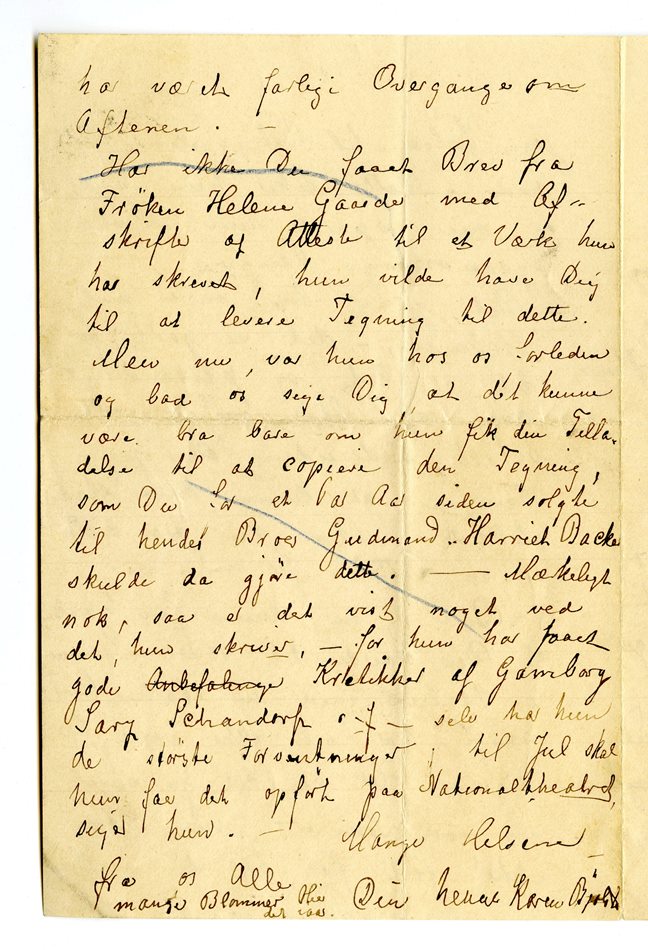 har været farlige Overgange om
Aftenen. —
Har ikke Du faaet Brev fra
Fröken Helene Gaarde med Af-
skrifter af Atteste til et Værk hun
har skrevet, hun vilde have Dig
til at levere Tegning til dette.
Men nu, var hun hos os forleden
og bad os sige Dig, at det kunne
være bra bare om hun fik din Tilla-
delse til at copiere den Tegning,
som Du for et Par Aar siden solgte
til hendes Broer Gudmand. Harriet Backer
skulde da gjöre dette. — Mærkeligt
nok, saa er det vist noget ved
det, hun skriver, — for hun har faaet
gode Anbefalinge Kritikker af Gamborg
Schandorf — selv har hun
de störste Forventninger, til Jul skal
hun faa det opfört paa Nationaltheatret,
siger hun. — Mange Hilsener —
fra os Alle
mange Blommer Hie
det iaar.
Din hengi Karen